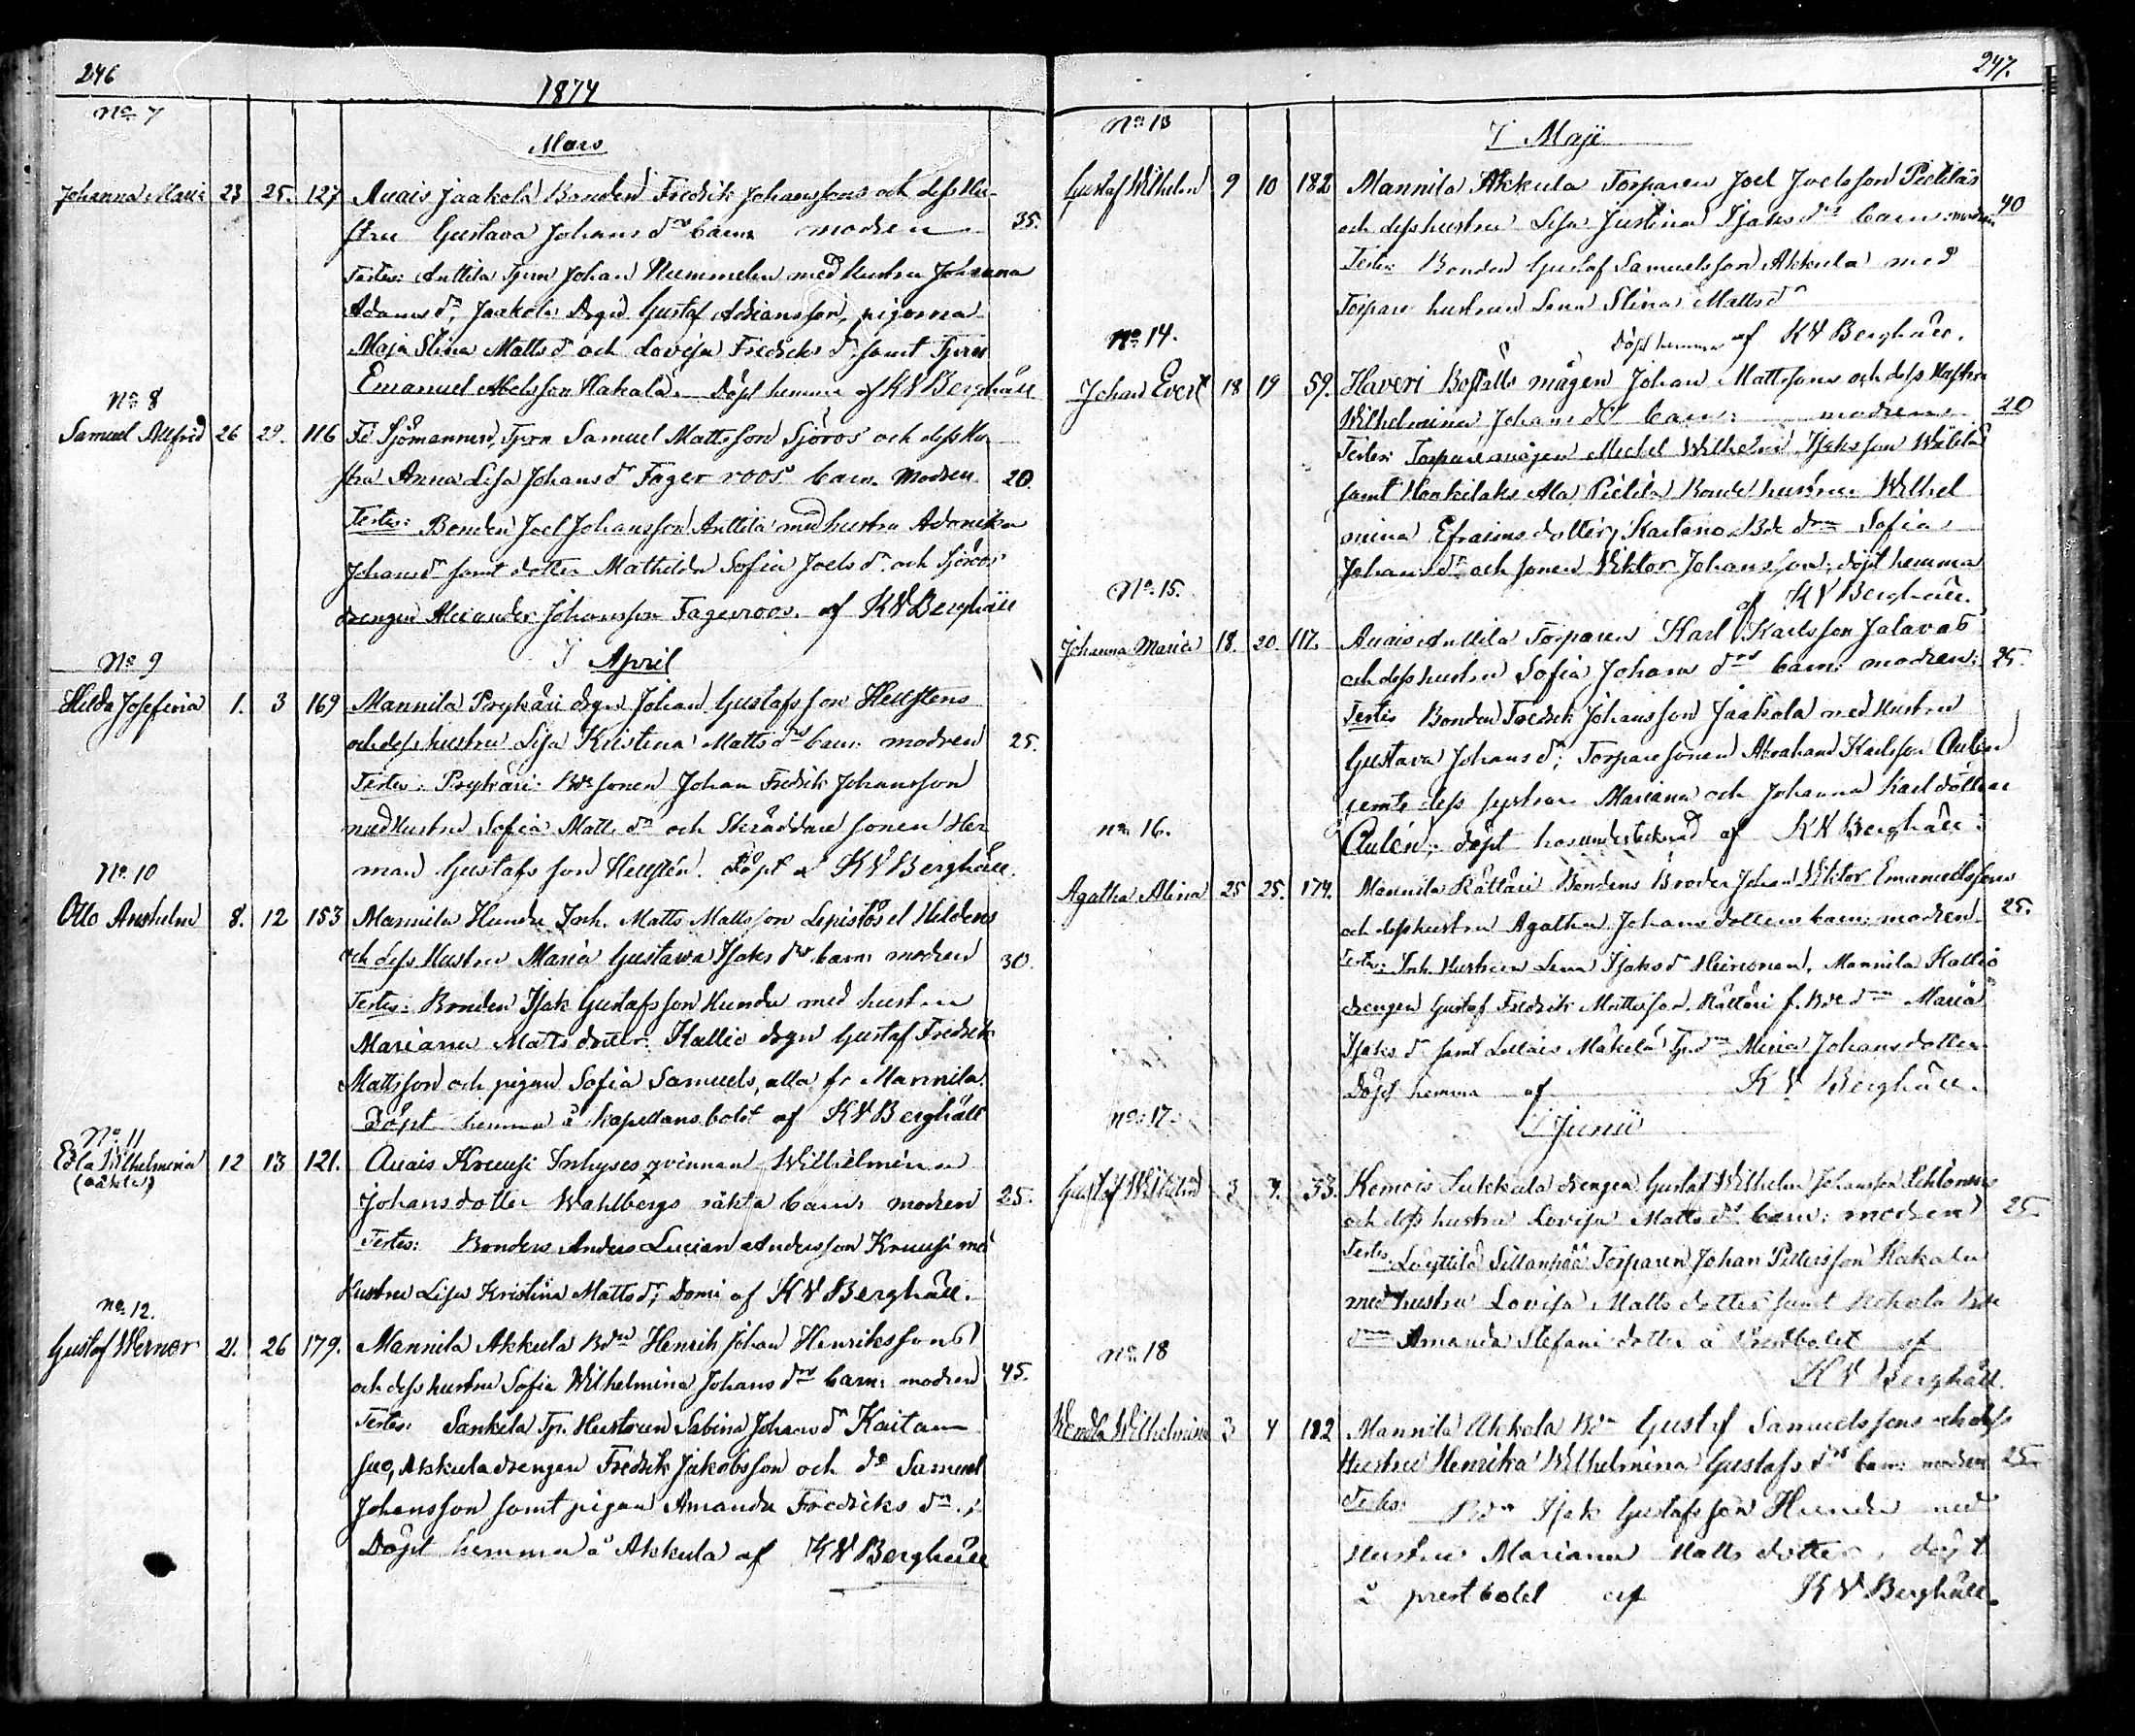 246
1874
No 7
Mars
Johanna Maria 23 25. 127 Auais Jaakola Bonden Fredrik Johanssons och dess Hu-
stru Gustava Johans drs barn modren 35.
Testes: Anttila Tprn Johan Hummelin med hustru Johanna
Adams dr, Jaakola Drgn Gustaf Adriansson, pigorna
Maja Stina Matts dr och Lovisa Fredriks dr samt Tprn
Emanuel Abelsson Hakala. Döpt hemma af KV Berghäll
No 8
Samuel Allfrid 26 29. 116 Sjömannen, Tprn Samuel Mattsson Sjöros och dess Hu
stru Anna Lisa Johans dr Fager roos barn. Modren 20.
Testes: Bonden Joel Johansson Anttila med hustru Adonika
Johans dr samt dotter Mathilda Sofia Joels dr och Sjöroos
drengen Alexander Johansson Fagerroos. af KV Berghäll
I April
No 9
Hilda Josefina 1. 3 169 Mannila Prykäri drgn Johan Gustafsson Hellstens
och dess hustru Lisa Kristina Matts drs barn: modren 25.
Testes: Prykäri Bde sonen Johan Fredrik Johansson
med Hustru Sofia Matts dr och Skräddare sonen Her
man Gustafsson Hellstén. Döpt af KV Berghäll.
No 10
Otto Anshelm 8. 12 153 Mannila Hundu Inh. Matts Mattsson Lepistös el Hildens
och dess Hustru Maria Gustawa Isaks drs barn: modren 30.
Testes: Bonden Isak Gustafsson Hundu med hustru
Mariana Matts dotter. Kallio drgn Gustaf Fredrik
Mattsson och pigan Sofia Samuels, alla fr Mannila.
Döpt hemma å kapellans bolet af KV Berghäll
No 11
Edla Wilhelmina 12 13 121. Auais Kruusi Inhyses qvinnan Wilhelmina
(oäkta)
Johansdotter Wahlbergs oäkta barn: modren 25.
Testes: Bonden Anders Lucian Andersson Kruusi med
hustru Lisa Kristina Matts dr; Domi af KV Berghäll.
No. 12.
Gustaf Werner 21. 26 179. Mannila Akkula Bdn Henrik Johan Henrikssons
och dess hustru Sofia Wilhelmina Johans drs barn: modren 45.
Testes: Sankila Tp. Hustrun Sabina Johans dr Kaitan
suo, Akkula drengen Fredrik Jakobsson och do Samuel
Johansson samt pigan Amanda Fredriks dr.;
Döpt hemma å Akkula af KV Berghäll
247.
No 13
I Maji
Gustaf Wilhelm 9 10 182 Mannila Akkula Torparen Joel Joelsson Pietiläs
och dess hustru Lisa Justina Isaks drs barn: modren 40
Testes: Bonden Gustaf Samuelsson Akkula med
Torpare hustrun Lena Stina Matts dr
Döpt hemma af KV Berghäll.
No 14.
Johan Evert 18 19 59. Haveri Boställs mågen Johan Mattssons och dess Hustru
Wilhelmina Johans drs barn: modren 20
Testes: Torpare mågen Michel Wilhelm Isaksson
samt Haakilaks Ala Pietilä Bonde hustrun Wilhel
mina Efraims dotter, Kaitano Bde drn Sofia
Johans dr och sonen Viktor Johansson, döpt hemma
af KV Berghäll.
No 15.
Johanna Maria 18. 20. 117. Auais Anttila Torparen Karl Karlsson Jalavas
och dess hustru Sofia Johans drs barn: modren: 25.
Testes Bonden Fredrik Johansson Jaakola med Hustru
Gustava Johans dr; Torpare sonen Abraham Karlsson Aulén
jemte dess systrar Mariana och Johanna Karl döttrar
Aulén; döpt hos undertecknad af KV Berghäll.
No 16.
Agatha Alina 25 25. 174. Mannila Rättäri Bondens Broder Johan Viktor Emanuelssons
och dess hustru Agatha Johans dotters barn: modren 25.
Testes: Inh. Hustrun Lena Isaks dr Heinonen, Mannila Kallio
drengen Gustaf Fredrik Mattsson. Rättäri f. Bde drn Maria
Isaks dr samt Lellais Mäkelä Tp. drn Miina Johansdotter
Döpt hemma af KV Berghäll.
No 17.
I Junii
Gustaf Wilhelm 3 4. 33. Kemois Sukkala drengen Gustaf Wilhelm Johansson Lehtonens
och dess hustru Lovisa Matts drs barn: modren 25.
Testes: Löyttilä Sillanpää Torparen Johan Pettersson Hakala
med hustru Lovisa Matts dotter samt Uckola Bde
drn Amanda Stefani dotter å Prestbolet af
KV Berghäll.
No. 18
Wendla Wilhelmina 3 4 182 Mannila Akkola Bdn Gustaf Samuelssons och dess
Hustru Henrika Wilhelmina Gustafs drs barn: modren 25.
Testes: Bdn Isak Gustafsson Hundu med
Hustru Mariana Matts dotter, döpt
å prestbolet af KV Berghäll.